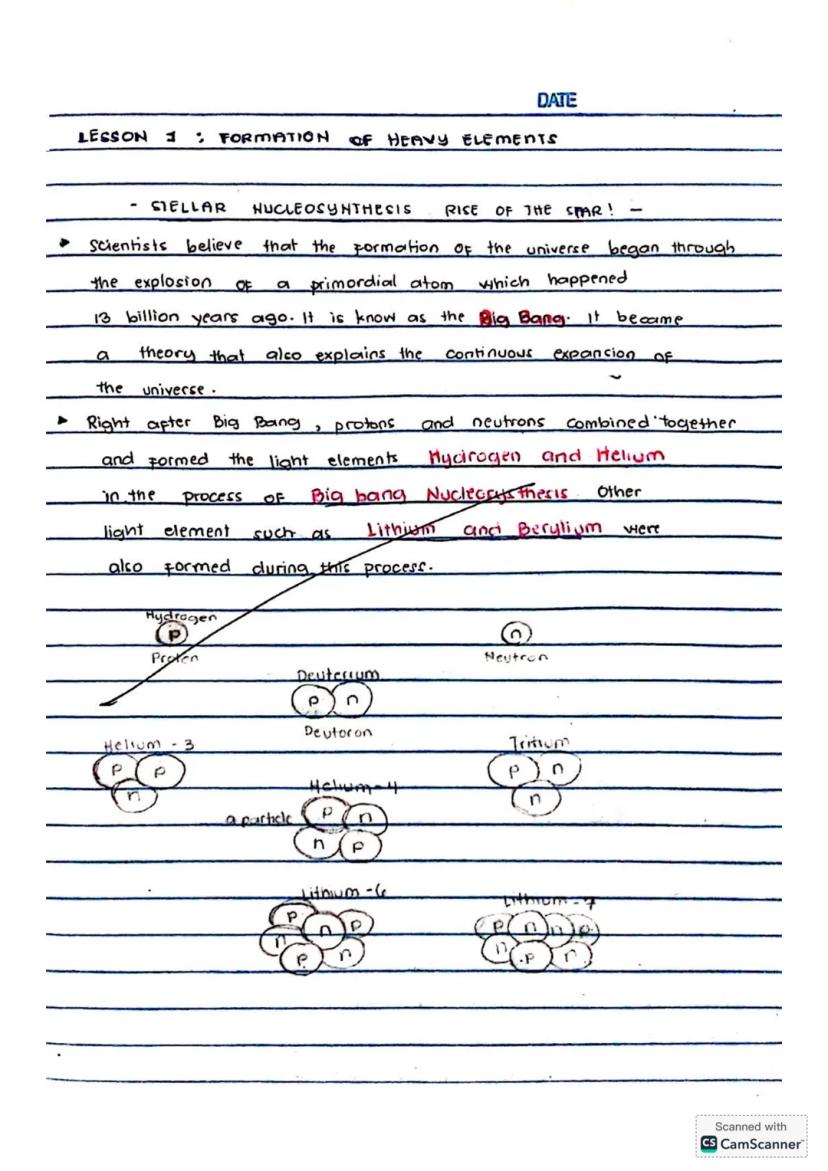 DATE
LESSON 1 : FORMATION OF HEAVY ELEMENTS
- STELLAR NUCLEOSYNTHESIS RISE OF THE STAR! -
Scientists believe that the formation of the universe began through
the explosion of a primordial atom which happened
13 billion years ago. It is know as the Big Bang. It became
a theory that also explains the continuous expancion of
the universe.
Right after Big Bang, protons and neutrons combined together
and formed the light elements Hydrogen and Helium
in the process of Big bang Nucleosysthesis Other
light element such as Lithium and Berylium were
also formed during this process.
Hydrogen
p
n
Proten
Neutron
Deuterium
p n
Deutoron
Helium - 3
Tritium
p p
p n
n
n
Helium-4
a particle
p n
n p
Lithium -6
Lithium - 7
p n p
p n n p
n p n
n p n
Scanned with
CS CamScanner